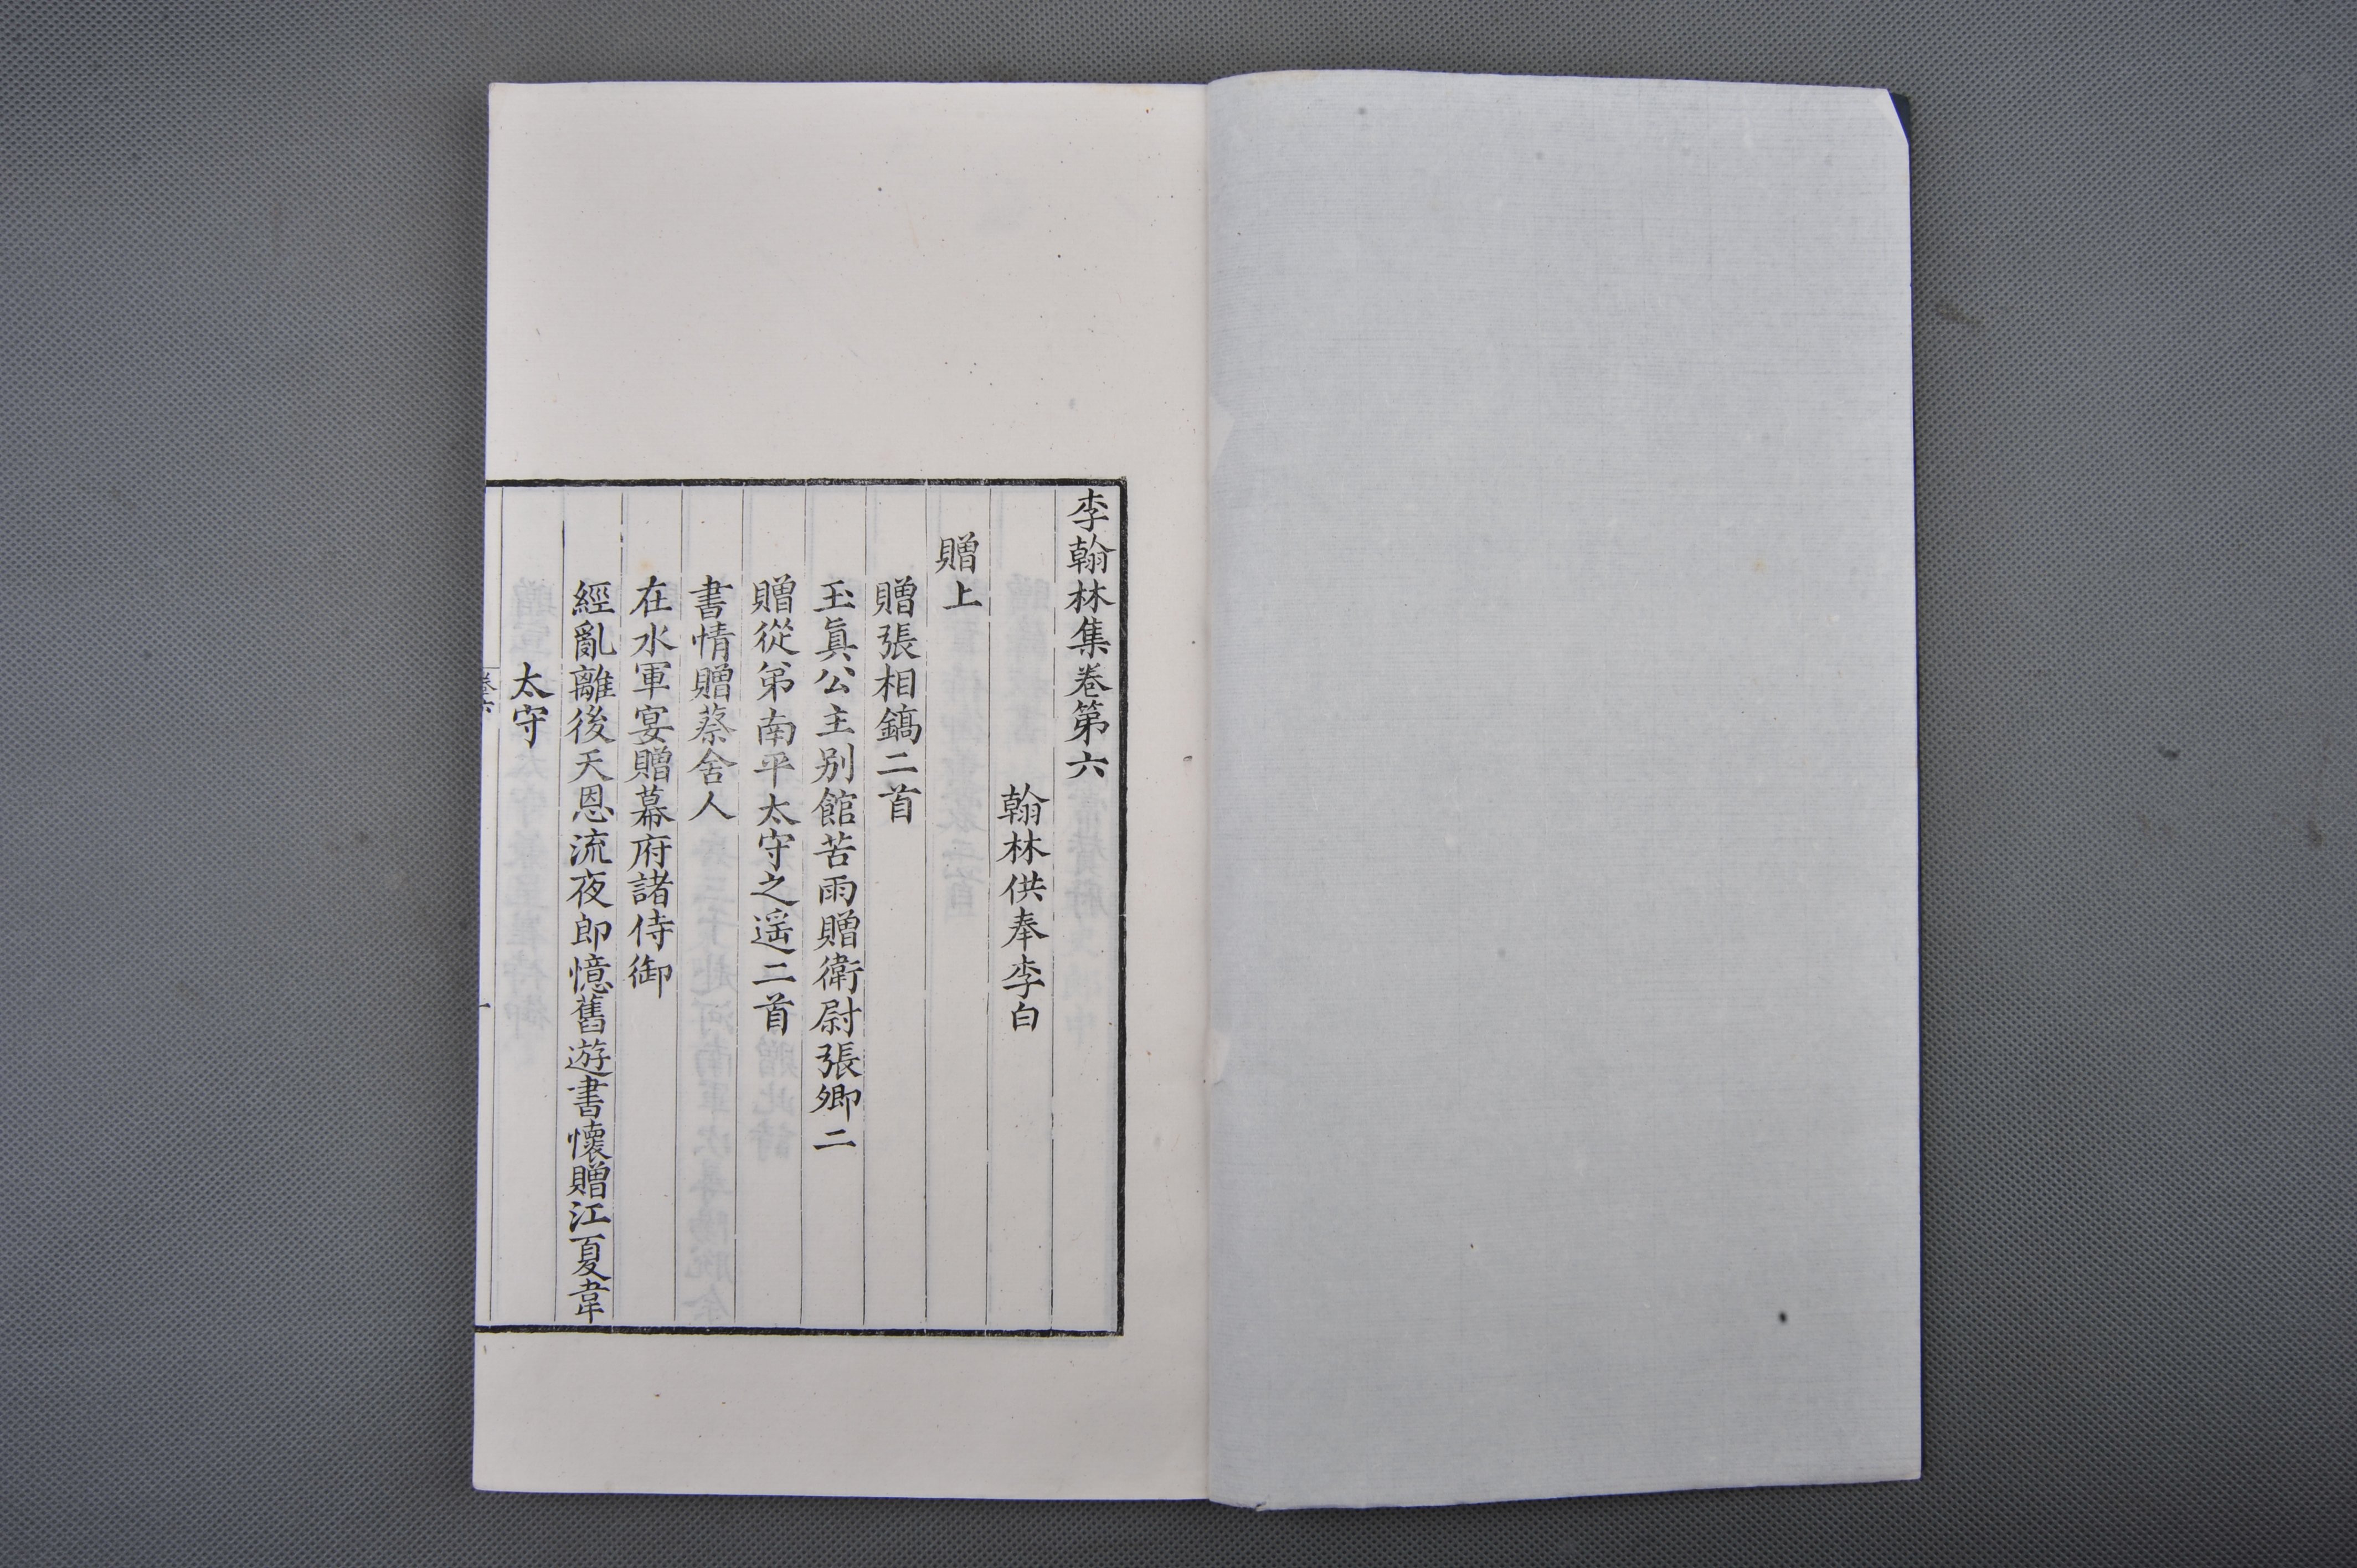 李翰林集卷第六
翰林供奉李白
贈上
贈張相鎬二首
玉眞公主别館苦雨贈衛尉張卿二
贈從弟南平太守之遥二首
書情贈蔡舍人
在水軍宴贈幕府諸侍御
經亂離後天恩流夜郎憶舊遊書懷贈江夏韋
太守
卷六